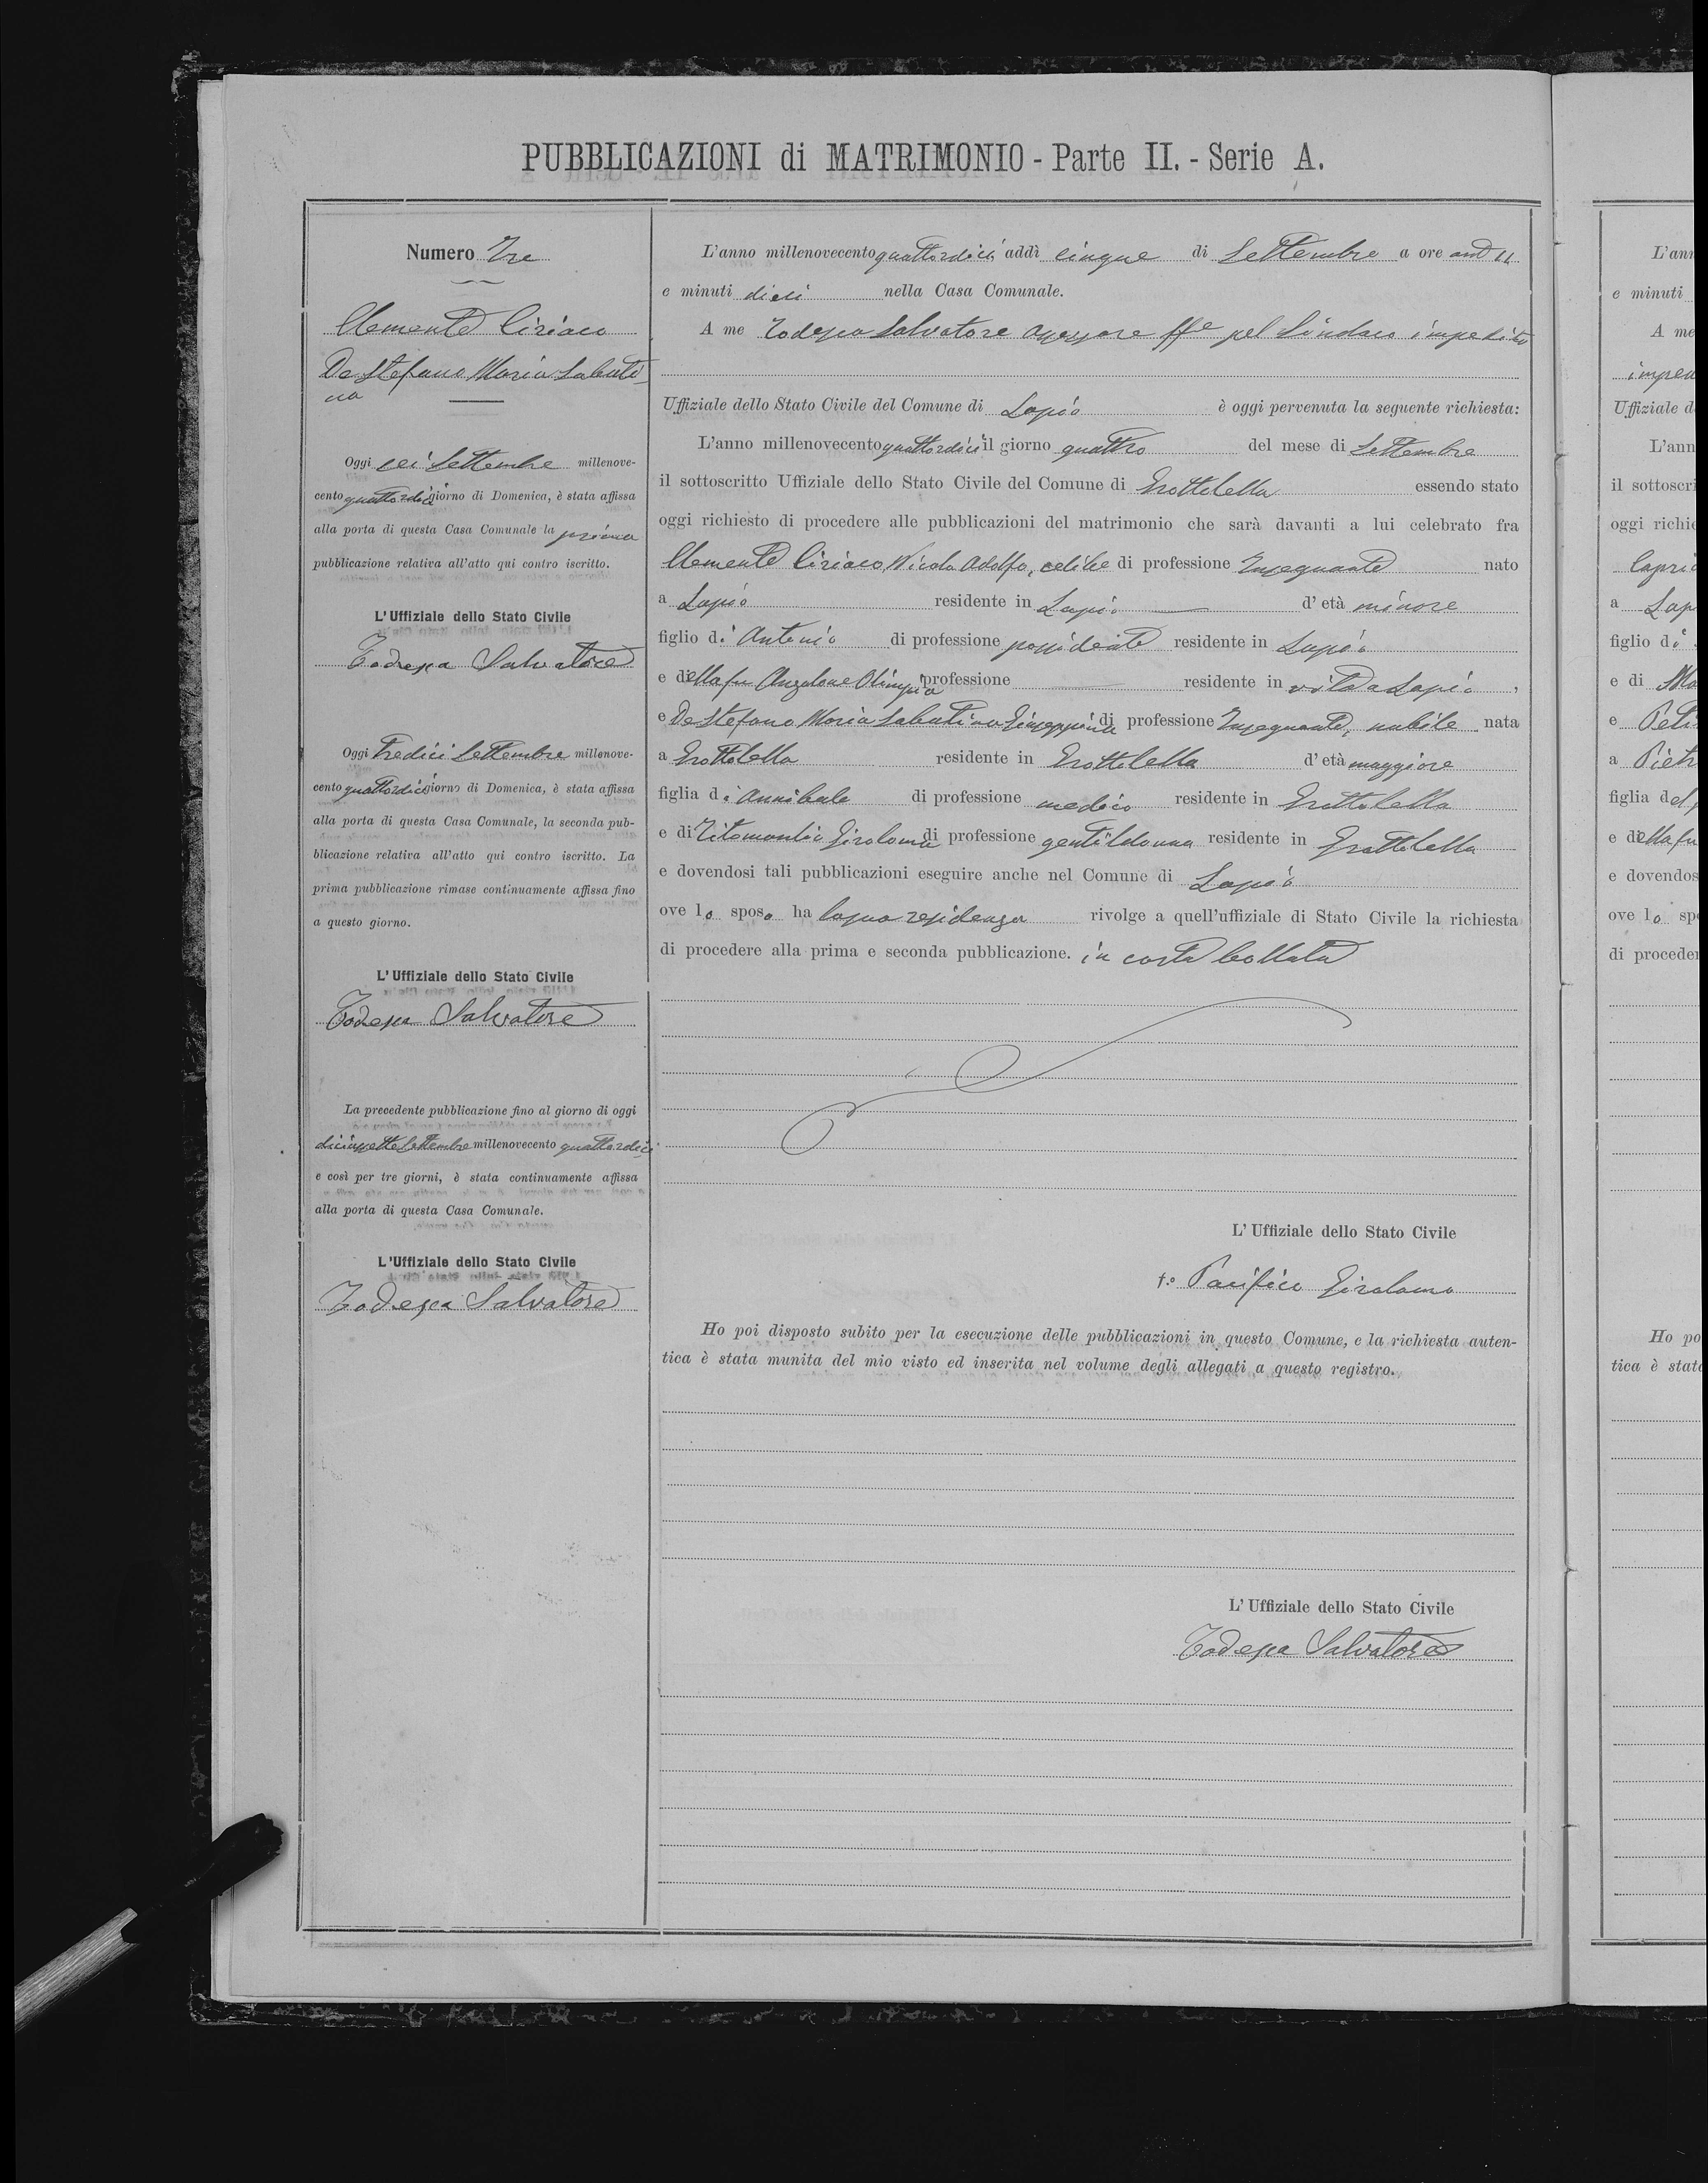 PUBBLICAZIONI di MATRIMONIO - Parte II. - Serie A.
Numero Tre
Clemente Ciriaco
De Stefano Maria Sabati-
na
Oggi sei Settembre millenove-
cento quattordici giorno di Domenica, è stata affissa
alla porta di questa Casa Comunale la prima
pubblicazione relativa all'atto qui contro iscritto.
L'Uffiziale dello Stato Civile
Todesca Salvatore
Oggi tredici Settembre millenove-
cento quattordici giorno di Domenica, è stata affissa
alla porta di questa Casa Comunale, la seconda pub-
blicazione relativa all'atto qui contro iscritto. La
prima pubblicazione rimase continuamente affissa fino
a questo giorno.
L'Uffiziale dello Stato Civile
Todesca Salvatore
La precedente pubblicazione fino al giorno di oggi
diciassette Settembre millenovecento quattordici
e così per tre giorni, è stata continuamente affissa
alla porta di questa Casa Comunale.
L'Uffiziale dello Stato Civile
Todesca Salvatore
L'anno millenovecento quattordici addì cinque di Settembre a ore ant 11
e minuti dieci nella Casa Comunale.
A me Todesca Salvatore assessore ffe pel Sindaco impedito
Uffiziale dello Stato Civile del Comune di Lapio è oggi pervenuta la seguente richiesta:
L'anno millenovecento quattordici il giorno quattro del mese di Settembre
il sottoscritto Uffiziale dello Stato Civile del Comune di Grottolella essendo stato
oggi richiesto di procedere alle pubblicazioni del matrimonio che sarà davanti a lui celebrato fra
Clemente Ciriaco Nicola Adolfo, celibe di professione Insegnante nato
a Lapio residente in Lapio d'età minore
figlio di Antonio di professione possidente residente in Lapio
e della fu Anzalone Olimpia professione residente in vita a Lapio,
e De Stefano Maria Sabatina Giuseppina di professione Insegnante, nubile nata
a Grottolella residente in Grottolella d'età maggiore
figlia di Annibale di professione medico residente in Grottolella
e di Titomanlio Girolama di professione gentildonna residente in Grottolella
e dovendosi tali pubblicazioni eseguire anche nel Comune di Lapio
ove lo sposo ha la sua residenza rivolge a quell'uffiziale di Stato Civile la richiesta
di procedere alla prima e seconda pubblicazione. in carta bollata
L'Uffiziale dello Stato Civile
fo Pacifico Girolamo
Ho poi disposto subito per la esecuzione delle pubblicazioni in questo Comune, e la richiesta auten-
tica è stata munita del mio visto ed inserita nel volume degli allegati a questo registro.
L'Uffiziale dello Stato Civile
Todesca Salvatore
L'ann
e minuti
A me
Uffiziale d
L'ann
il sottoscri
oggi richie
a Lap
figlio di
e di Ma
e
a Pietr
figlia del
e della fu
e dovendos
ove lo sp
di proceder
Ho po
tica è stat